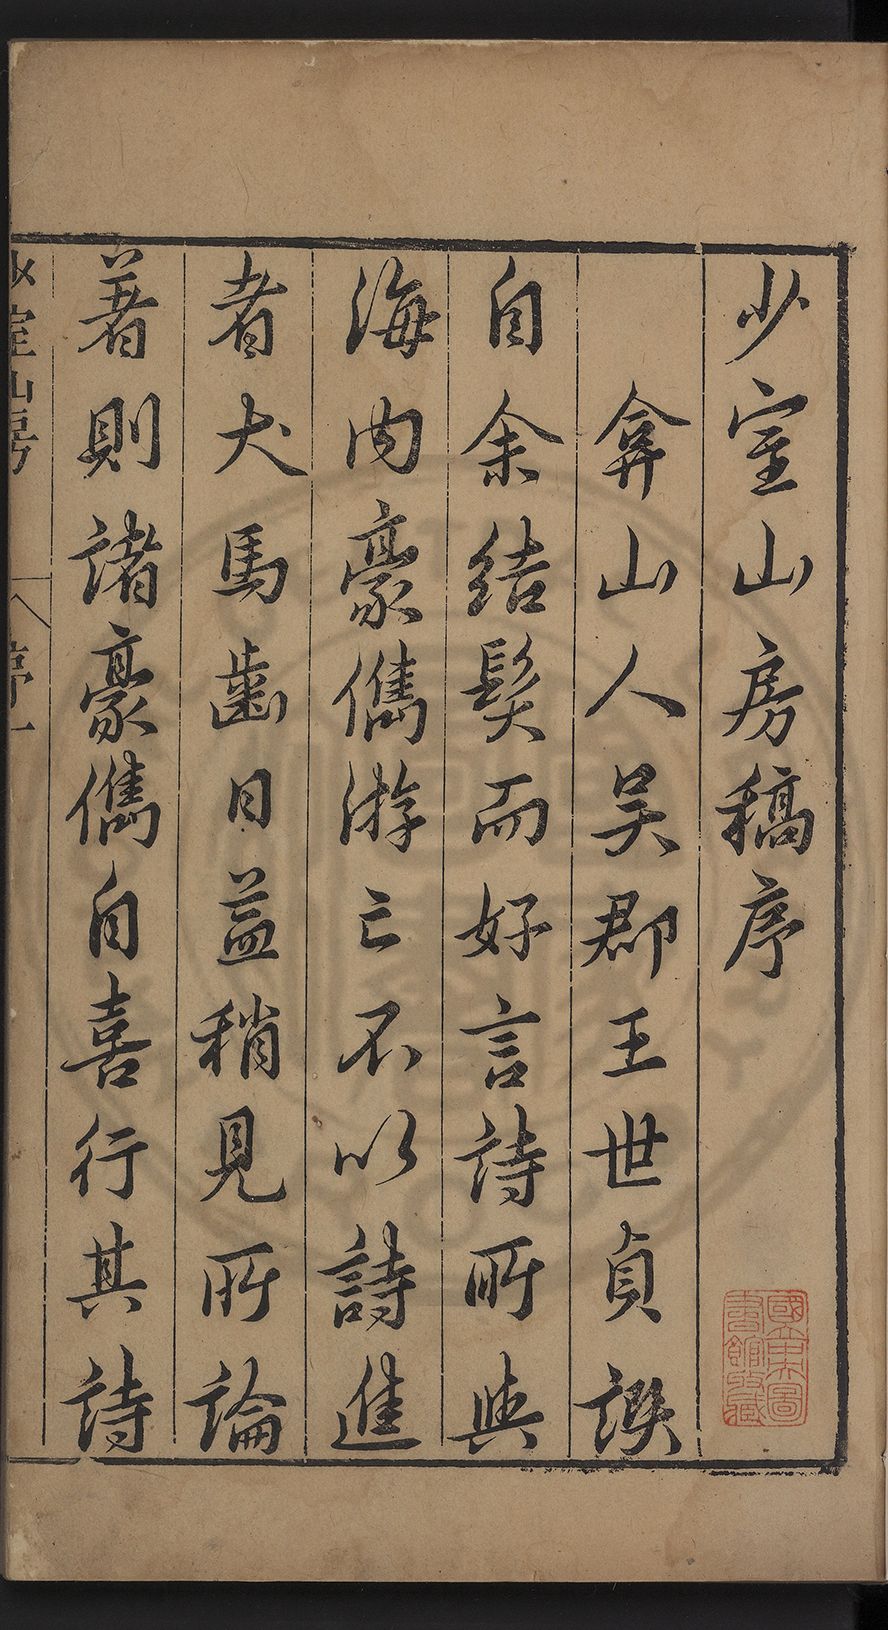 少室山房稿序
弇山人吳郡王世貞譔
自余結髮而好言詩所與
海內豪儁游亡不以詩進
者犬馬齒日益稍見所論
著則諸豪儁自喜行其詩
少室山房 序 一
國立中央圖書館收藏